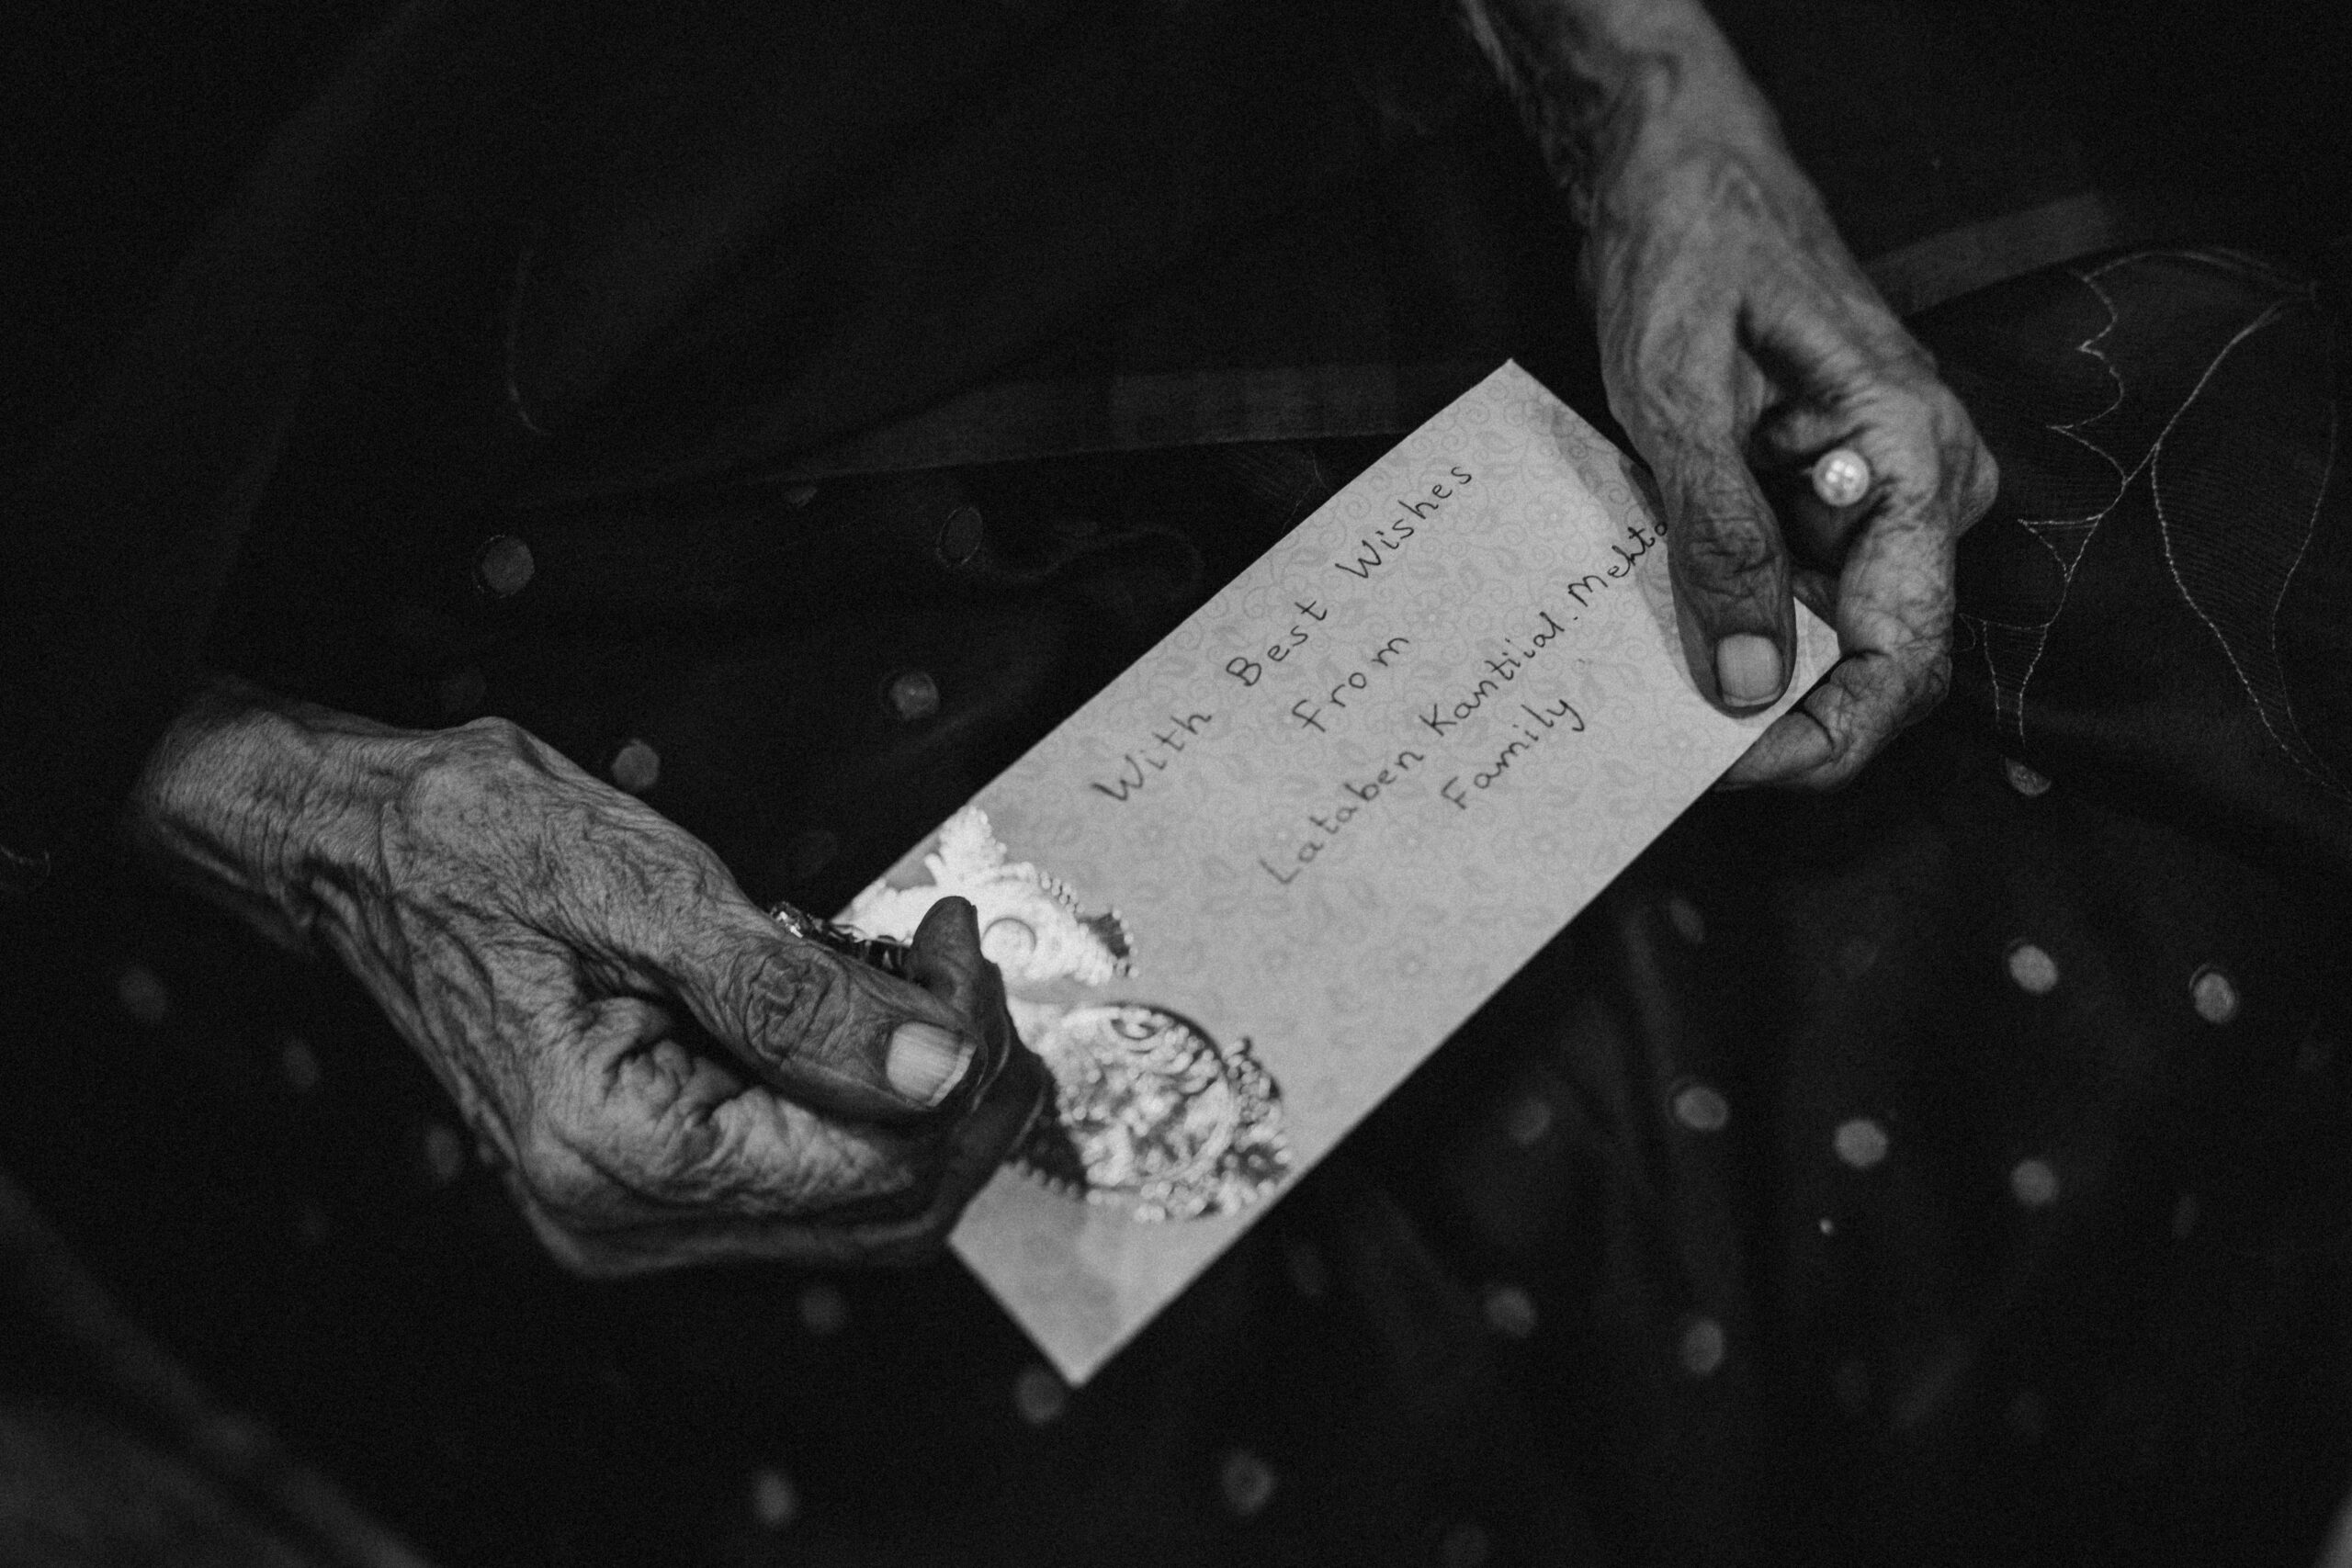 With Best Wishes
From
Lataben Kantilal. Mehta
Family